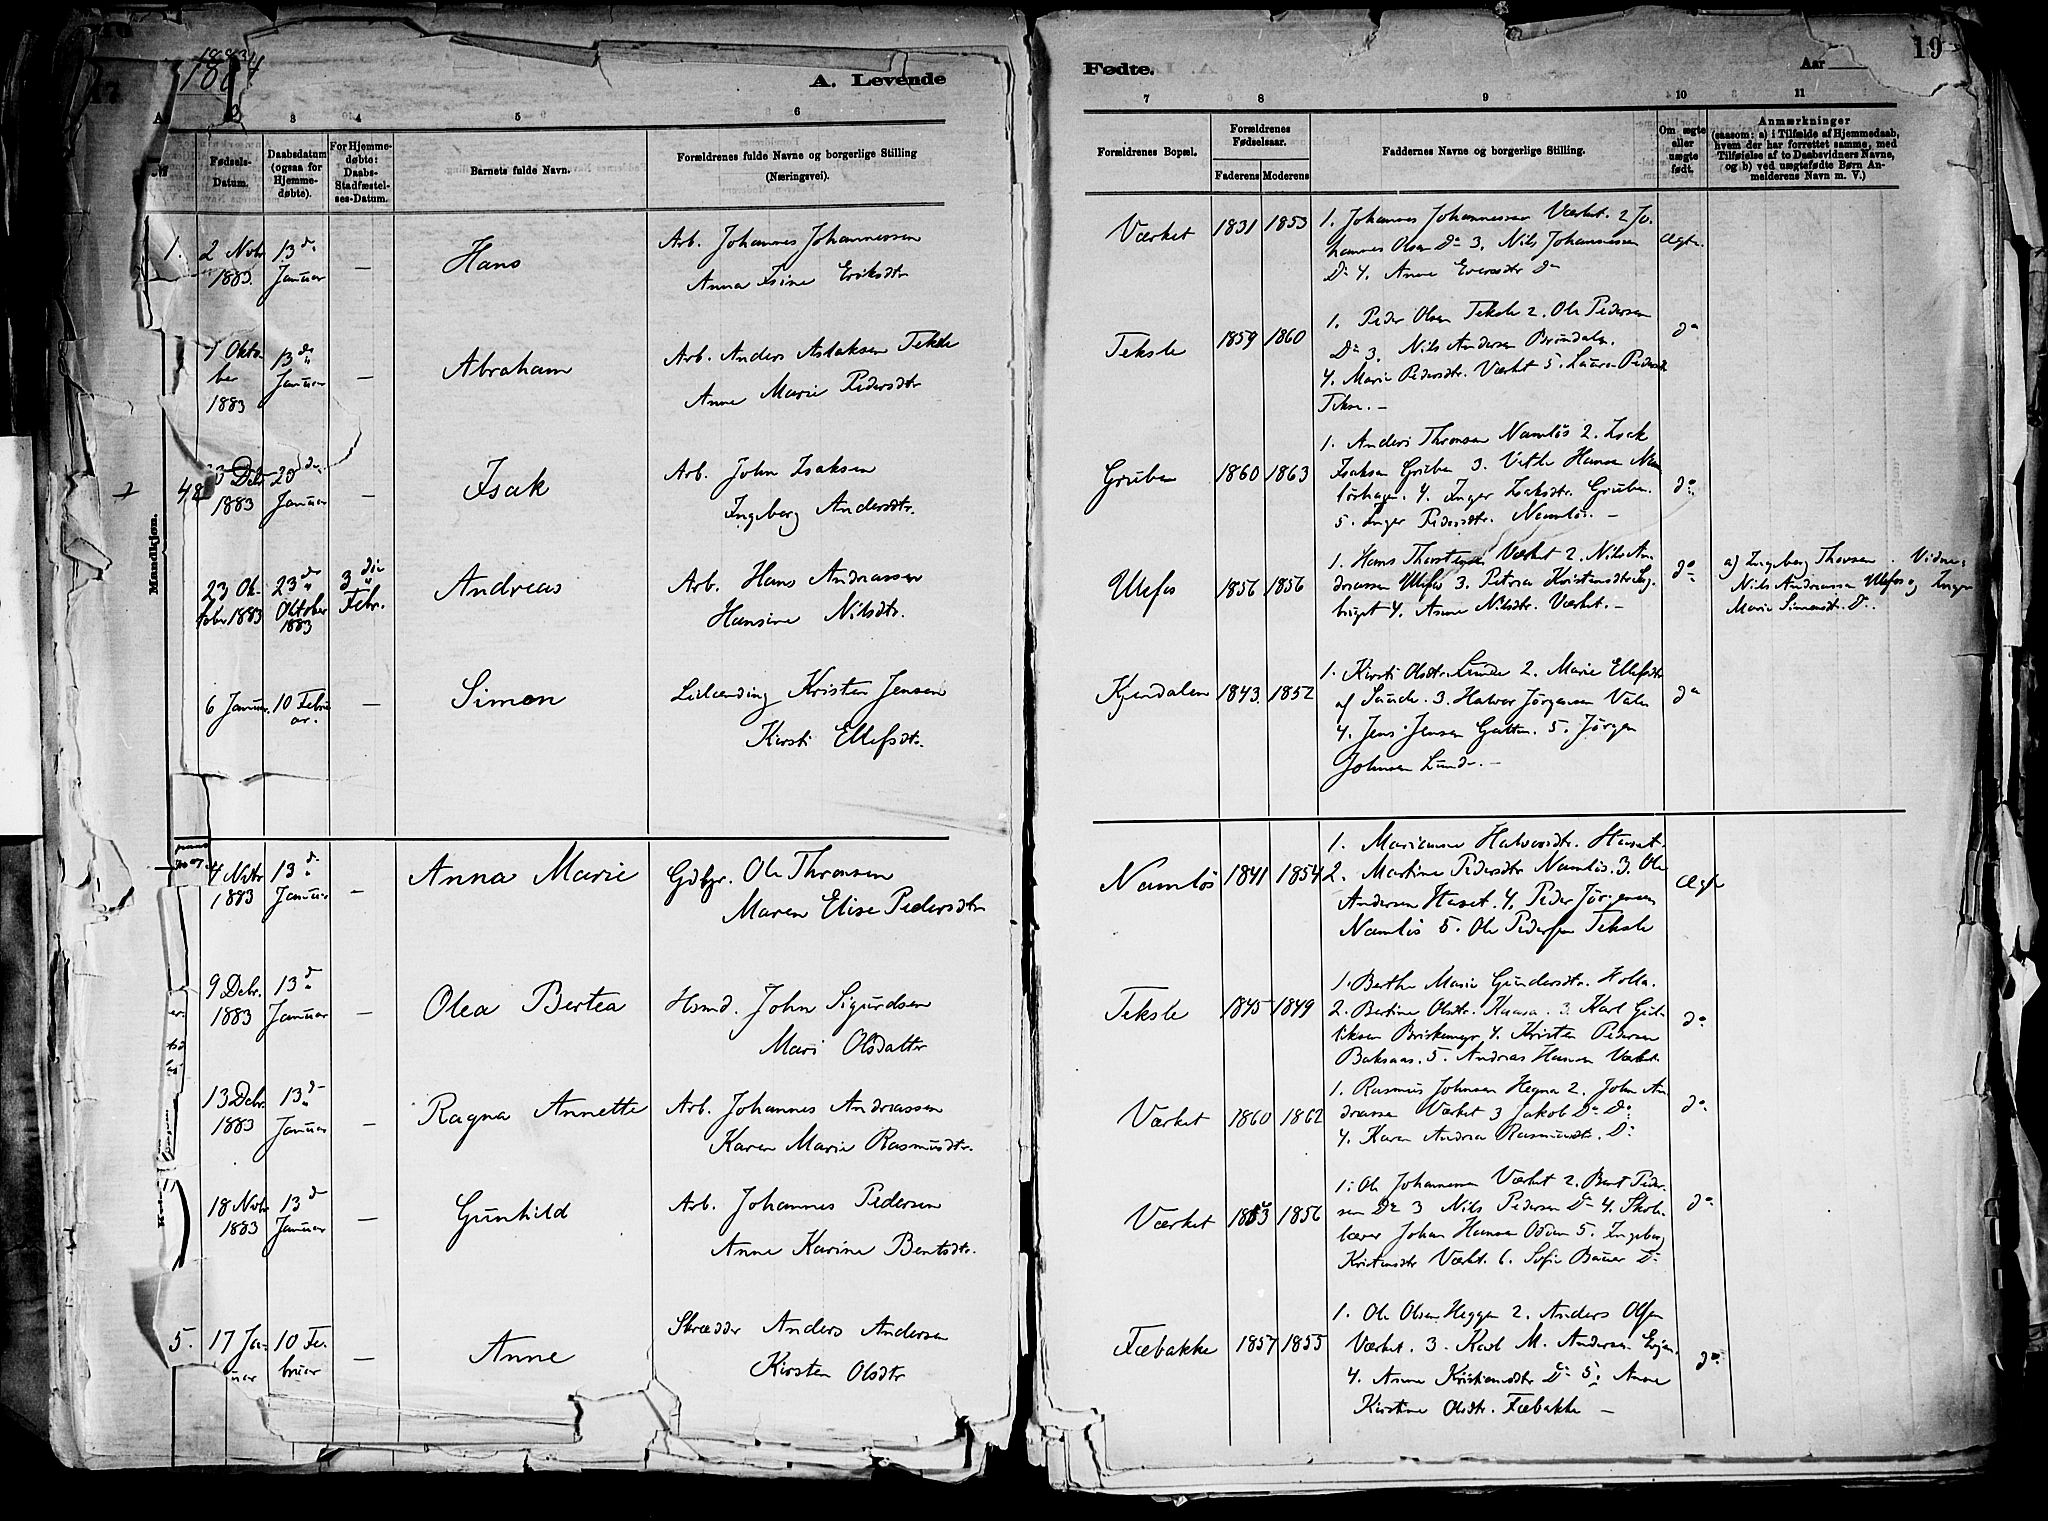 1884
A. Levende
Fødte.
Aar
19
3 4 5 6 7 8 9 10 11
Fødsels-Datum.
Daabsdatum (ogsaa for Hjemmedøbte).
For Hjemmedøbte: Daabs-Stadfæstelses-Datum.
Barnets fulde Navn.
Forældrenes fulde Navne og borgerlige Stilling (Næringsvei).
Forældrenes Bopæl.
Forældrenes Fødselsaar.
Faderens Moderens
Faddernes Navne og borgerlige Stilling.
Om ægte eller uægte født.
Anmærkninger
(saasom: a) i Tilfælde af Hjemmedaab, hvem der har forrettet samme, med Tilføielse af to Daabsvidners Navne, og b) ved uægtefødte Børn Anmelderens Navn m. V.)
Mandkjøn.
1. 2 Novbr 1883. 13 d. Januar — Hans
Arb. Johannes Johannessen
Anna Eriksdtr
Værket 1831 1853
1. Johannes Johannessen Værket. 2 Jo-
hannes Olsen Do 3. Nils Johannesen
Do 4. Anne Do
Ægte.
Oktober 1883 13 d. Januar — Abraham
Arb. Anders Aslaksen Teksle
Anne Marie Pedersdtr
Teksle 1859 1860
1. Peder Olsen Teksle 2. Ole Pedersen
Do 3. Nils Andersen
4. Marie Pedersdtr. Værket 5. Laura Pedersdtr
Tekse. —
do
Debr 1883 20 d. Januar — Isak
Arb. John Isaksen
Ingeborg Andersdtr.
Gruben 1860 1863
1. Anders Thronsen Namløs 2. Isak
Isaksen Gruben 3. Vetle Hansen Nam-
løshagen. 4. Inger Isaksdtr. Gruben.
5. Inger Pedersdtr. Namløs. —
do
23 Oktober 1883 23 d. Oktober 1883 3 die Febr. Andreas
Arb. Hans Andreassen
Hansine Nilsdtr.
Ulefos 1856 1856
1. Hans Thorstensen Værket 2. Nils An-
dreassen Ulefos 3. Petrea Kristensdtr
4. Anne Nilsdtr. Værket. —
do
a) Ingeborg Thorsen. Vidner
Nils Andreassen Ulefos og Inger
Marie Simensdtr. Do.
6 Januar. 10 Februar. — Simon
Leilænding Kristen Jensen
Kirsti Ellefsdtr.
Kjendalen 1843. 1852
1. Kirsti Olsdtr. Lunde 2. Marie Ellefsdtr
af Saude. 3. Halvor Jørgensen Valen
4. Jens Jensen 5. Jørgen
Johnsen Lunde. —
do
4 Novbr 1883 13 d. Januar — Anna Marie
Gdbgr. Ole Thronsen
Maren Elise Pedersdtr
Namløs 1841 1854
1. Marianne Halvorsdtr. Haset.
2. Martine Pedersdtr Namløs. 3. Ole
Andersen Haset. 4. Peder Jørgensen
Namløs 5. Ole Pedersen Teksle
Ægte
9 Debr. 1883 13 d. Januar — Olea Bertea
Hsmd. John Sigurdsen
Mari Olsdatter
Teksle 1845 1849
1. Berthe Marie Gundersdtr. Holla.
2. Bertine Olsdtr. 3. Karl
4. Kristen Pedersen
Baksaas. 5. Andreas Hansen Værket.
do.
13 Debr. 1883 13 d. Januar — Ragna Annette
Arb. Johannes Andreassen
Karen Marie Rasmusdtr.
Værket 1860 1862
1. Rasmus Johnsen Hegna 2. John An-
dreassen Værket 3 Jakob Do Do
4. Karen Andrea Rasmusdtr. Do
do.
18 Novbr 1883 13 d Januar — Gunhild
Arb. Johannes Pedersen
Anne Karine Bentsdtr.
Værket 1853 1856
1. Ole Johannessen Værket 2. Bent Peder-
sen Do 3 Nils Pedersen Do 4. Skole-
lærer Johan Hansen 5. Ingeborg
Kristensdtr Værket. 6. Sofie Bauer Do
do
5. 17 Januar 10 Februar — Anne
Skrædder Anders Andersen
Kirsten Olsdtr
Fæbakke 1857 1855
1. Ole Olsen Heggen 2. Anders Olsen
Værket. 3. Karl M. Andersen
4. Anne Kristiansdtr Do 5. Anne
Kirstine Olsdtr. Fæbakke —
do.